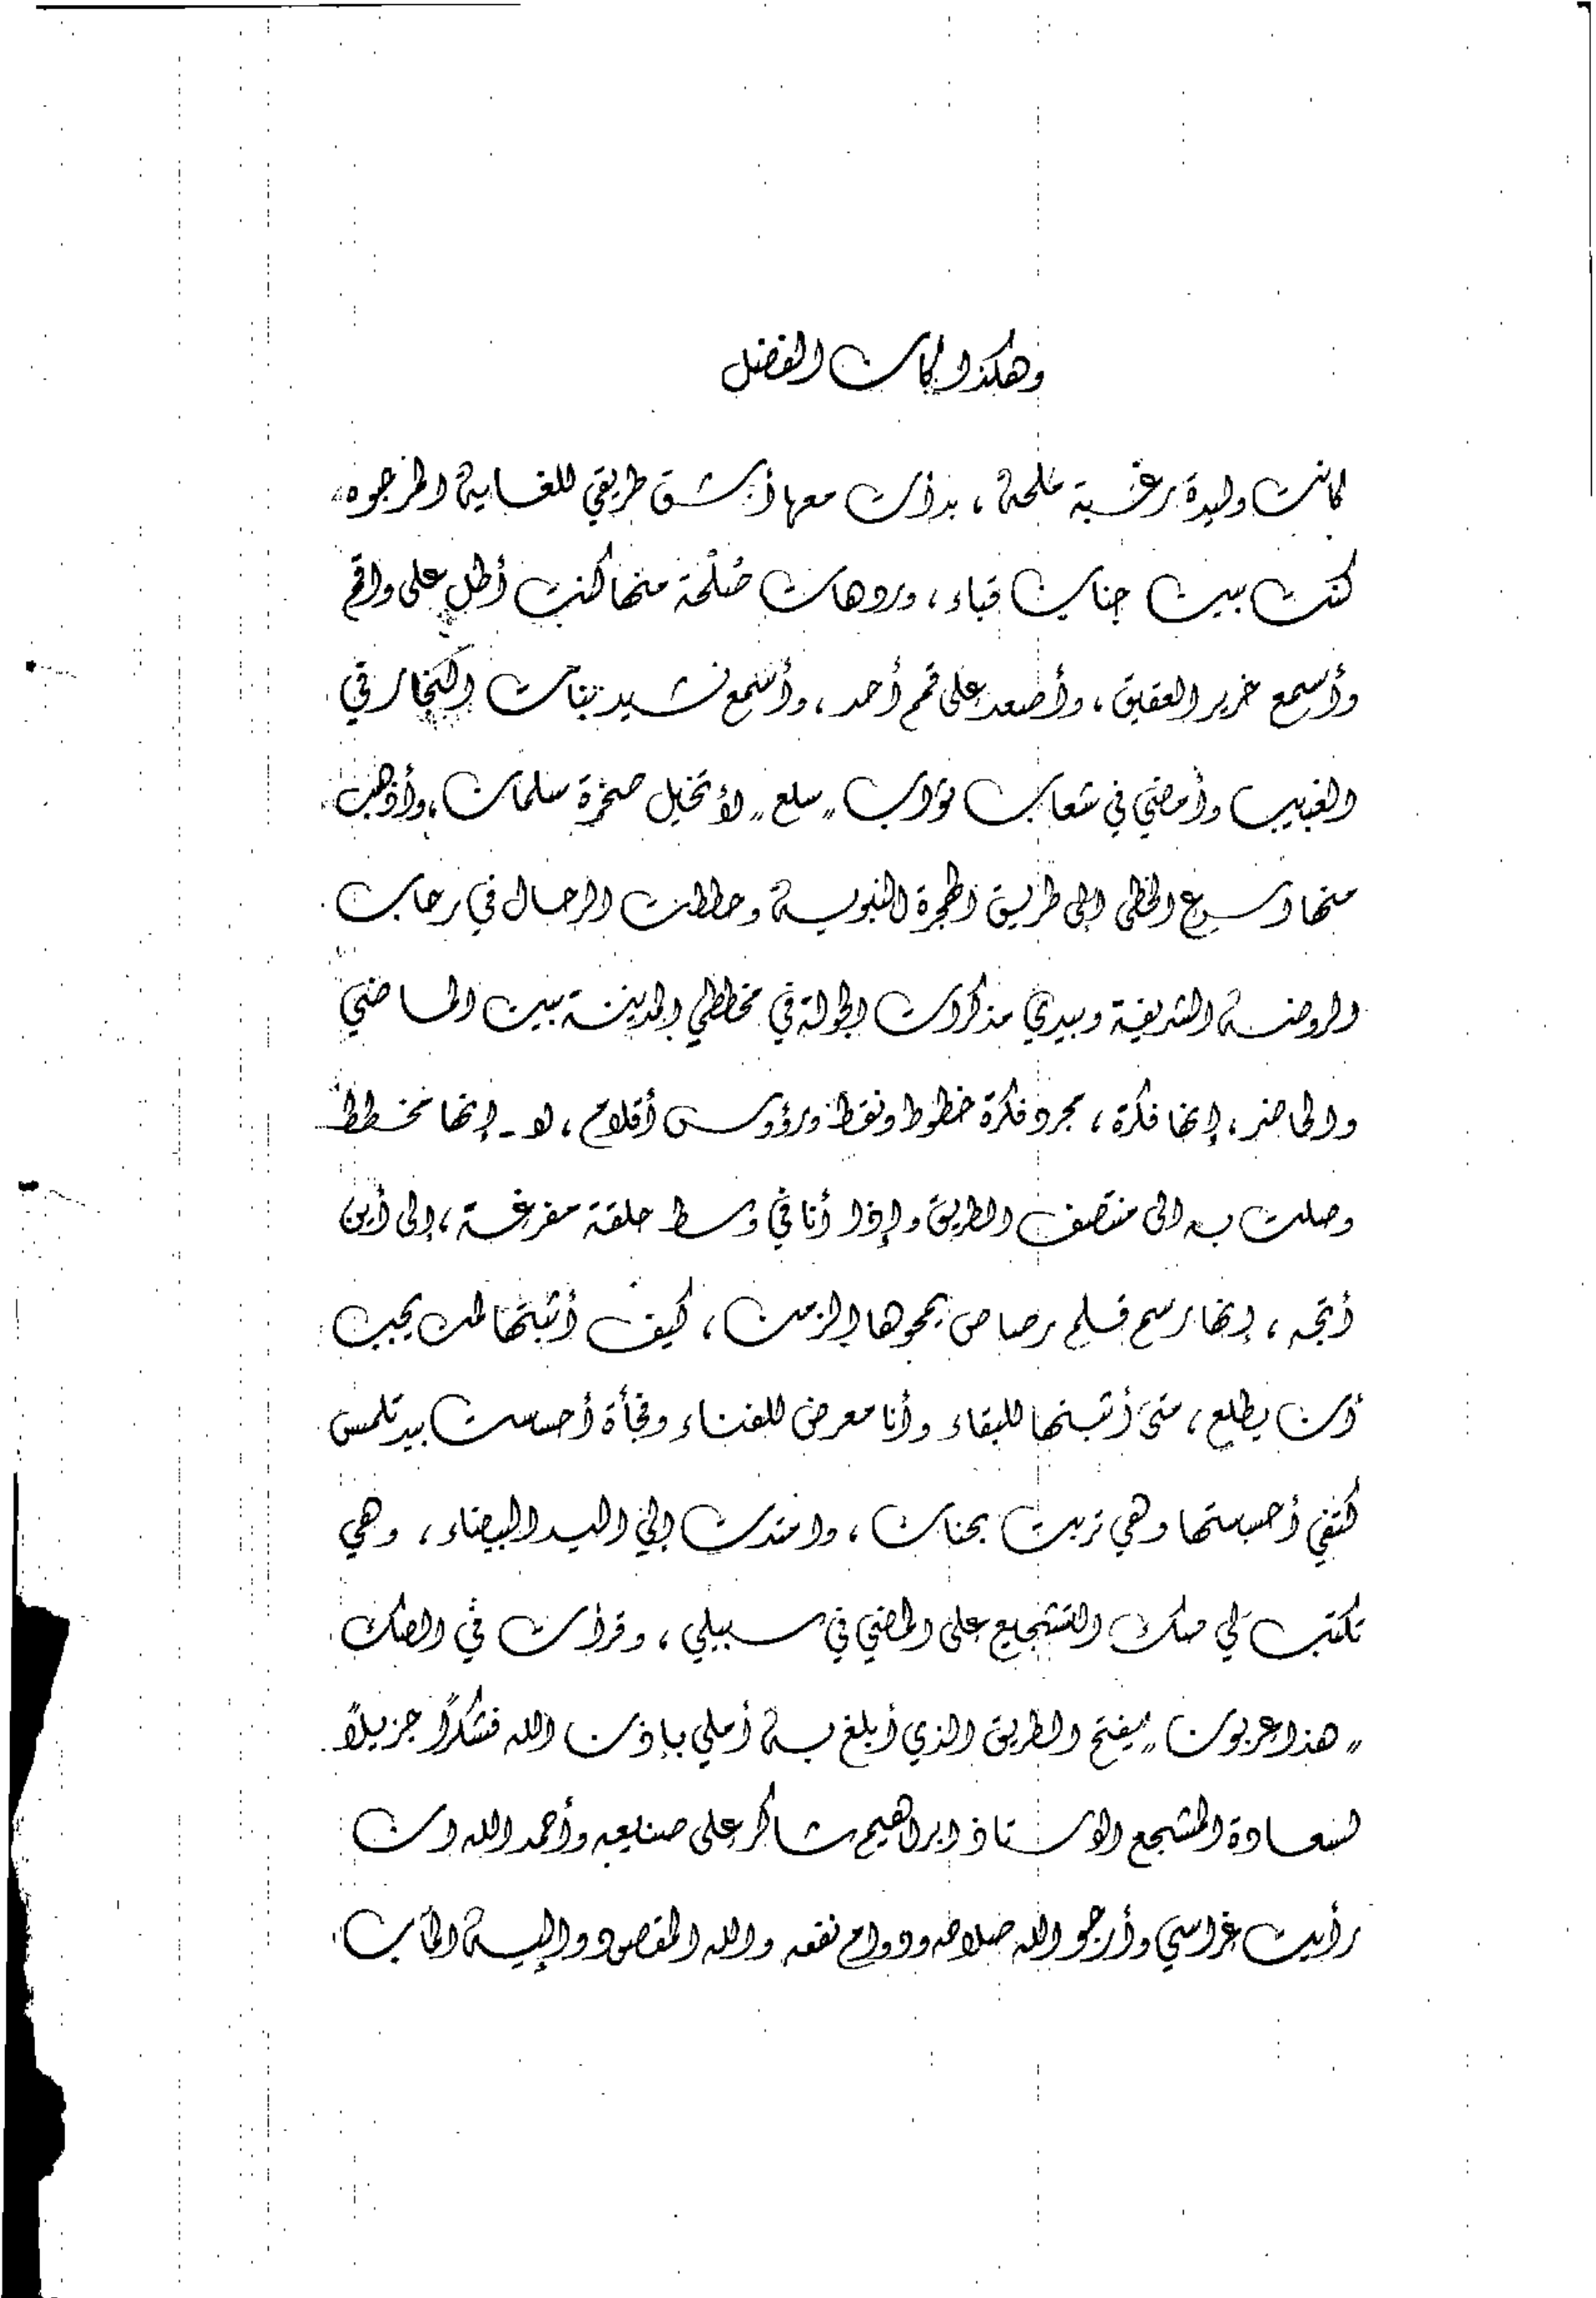 وهكذا كان الفضل
كانت وليدة رغبة ملحة ، بدأت معها أشق طريقي للغاية المرجوه
كنت بين جنان قباء ، وردهات ملحة منها كنت أطل على واقم
وأسمع خرير العقيق ، وأصعد على قمم أحد ، وأسمع نشيد بنات النجار في
الغبيب وأمضي في شعاب ثواب " سلع " لأتخيل صخرة سلمان ، وأذهب
منها وسرع الخطى إلى طريق الهجرة النبوية وحططت الرحال في رحاب
الروضة الشريفة وبيدي مذكرات الجولة في مخططي المدينة بين الماضي
والحاضر ، إنها فكرة ، مجرد فكرة خطوط ونقط ورؤوس أقلام ، لا - إنها مخطط
وصلت به الى منتصف الطريق وإذا أنا في وسط حلقة مفرغة ، إلى أين
أتجه ، إنها رسم قلم رصاص يمحوها الزمن ، كيف أثبتها لمن يحب
أن يطلع ، متى أثبتها للبقاء وأنا معرض للفناء وفجأة أحسست بيد تلمس
كتفي أحسستها وهي تربت بحنان ، وامتدت إلي اليد البيضاء ، وهي
تكتب لي صك التشجيع على المضي في سبيلي ، وقرأت في الصك
" هذا عربون " يفتح الطريق الذي أبلغ به أملي بإذن الله فشكراً جزيلاً
لسعادة المشجع الاستاذ ابراهيم شاكر على صنايعه وأحمد الله ان
رأيت غراسي وأرجو الله صلاحه ودوام نفعه والله المقصود وإليه المآب